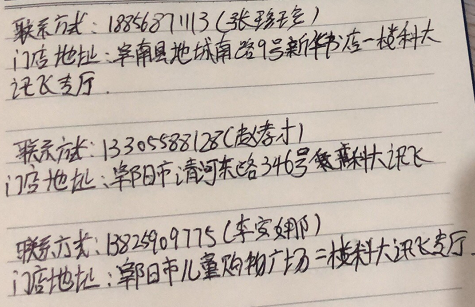 联系方式：18856871113（张
门店地址：阜南县地城南路9号新华书店一楼科大
讯飞专厅.
联系方式：13305588128（赵孝才）
门店地址：阜阳市清河东路346号 科大讯飞
联系方式：13825909775（李安娜）
门店地址：阜阳市儿童购物广场二楼科大讯飞专厅.